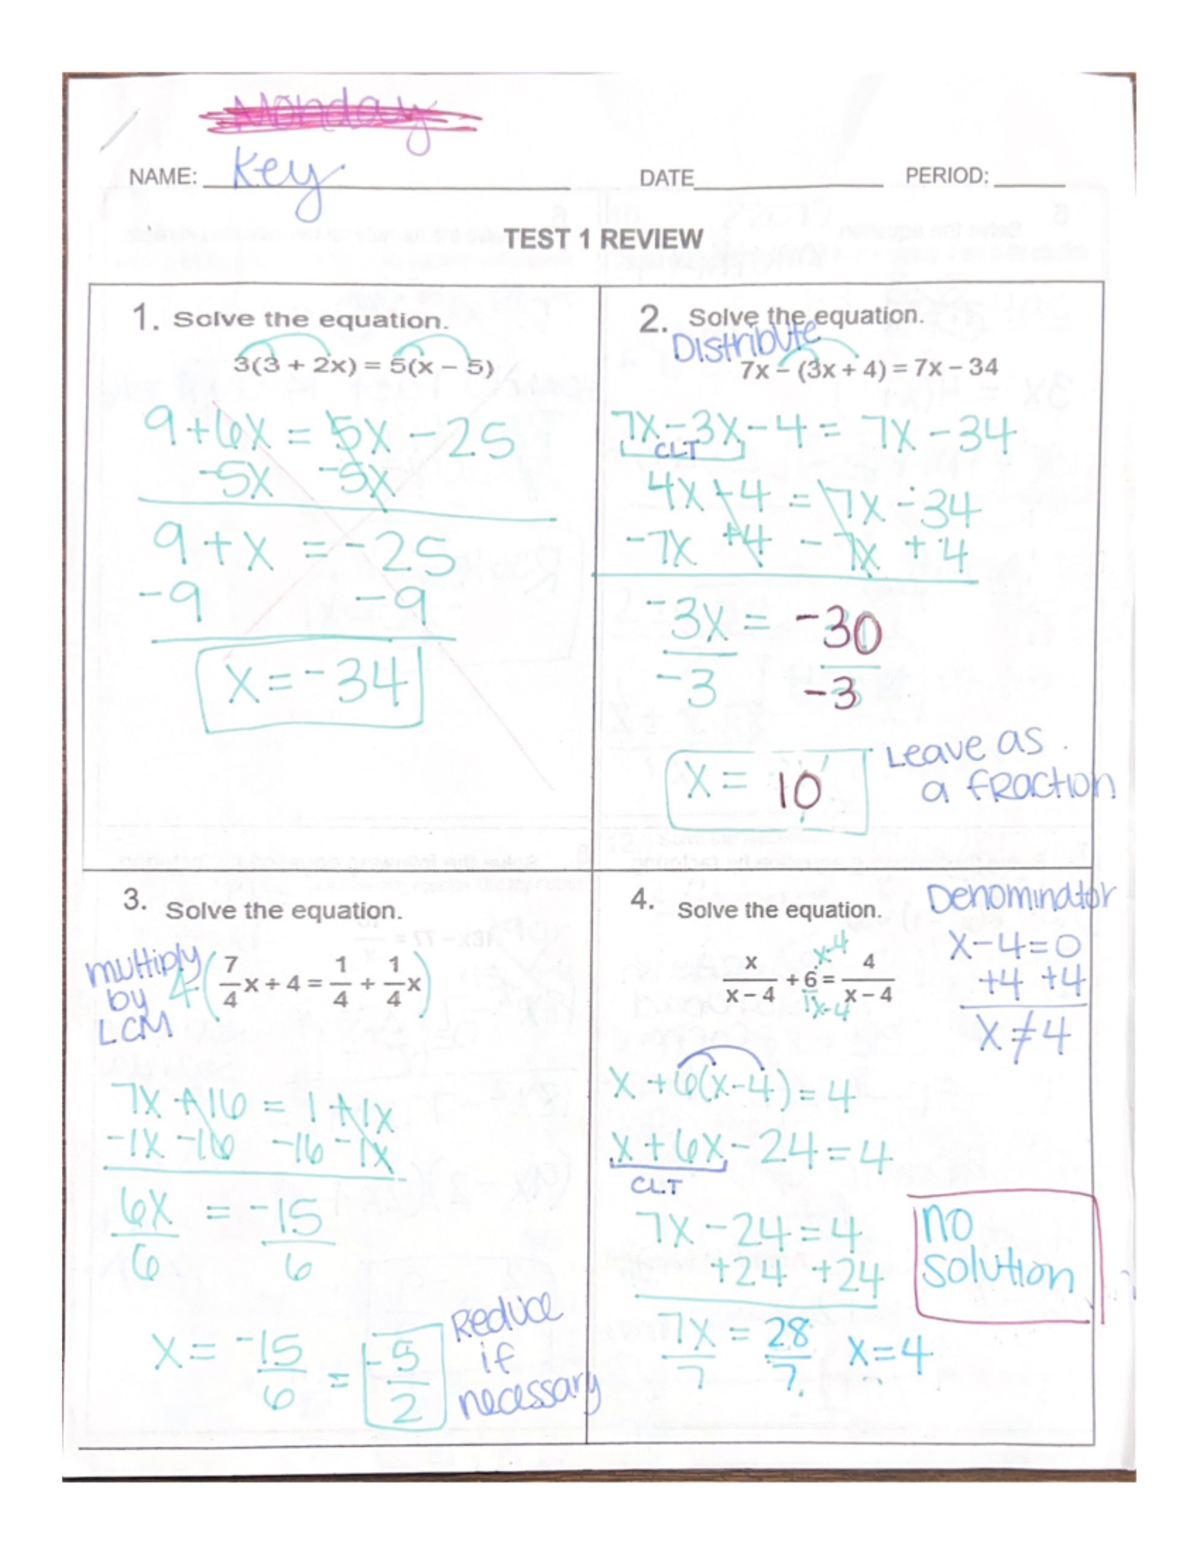 Monday
NAME: Key DATE PERIOD:
TEST 1 REVIEW
1. Solve the equation.
3(3 + 2x) = 5(x – 5)
9+6x = 5x -25
-5x -5x
9+x = -25
-9 -9
x = -34
2. Solve the equation.
Distribute
7x – (3x + 4) = 7x – 34
7x-3x-4 = 7x-34
CLT
4x+4 = 7x-34
-7x +4 -7x +4
-3x = -30
-3 -3
x = 10
Leave as
a fraction
3. Solve the equation.
multiply
by
LCM
4·(7/4 x + 4 = 1/4 + 1/4 x)
7x+16 = 1+1x
-1x -16 -16 -1x
6x = -15
6 6
x = -15/6 = -5/2
Reduce
if
necessary
4. Solve the equation.
Denominator
x-4=0
+4 +4
x≠4
x/(x – 4) + 6 = 4/(x – 4)
x-4
1x-4
x+6(x-4)=4
x+6x-24=4
CLT
7x-24=4
+24 +24
7x = 28
7 7
x=4
no
solution